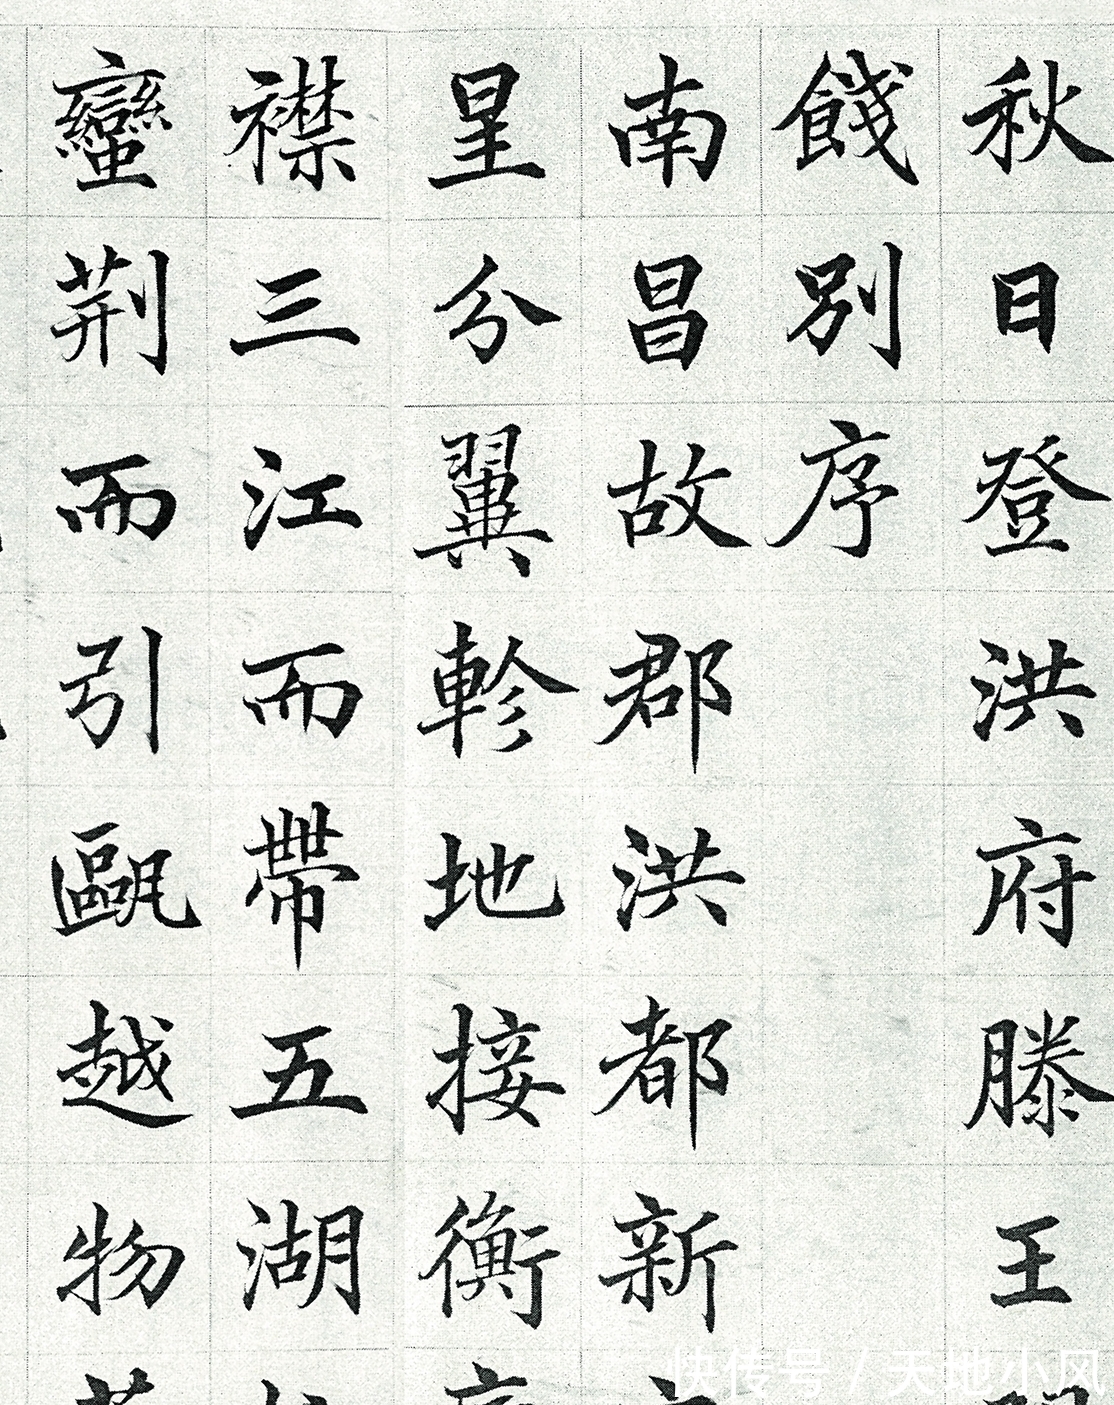 秋日登洪府滕王
餞別序
南昌故郡洪都新
星分翼軫地接衡
襟三江而帶五湖
蠻荆而引甌越物
快传号 / 天地小风